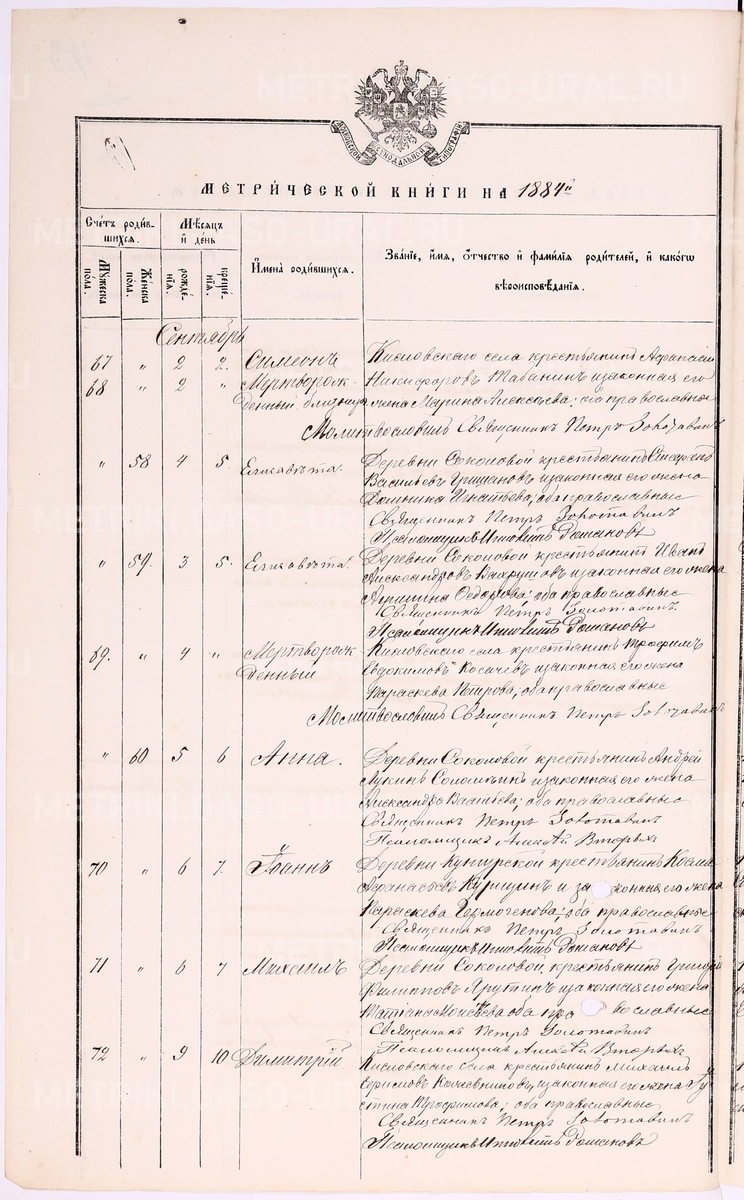 METRICS.GASO-URAL.RU
МОСКОВСКОЙ СѴНОДАЛЬНОЙ ТИПОГРАФІИ
МЕТРИ́ЧЕСКОЙ КНИ́ГИ НА 1884й
Сче́тъ роди́в- шихся.
Мѣ́сяцъ и҆ де́нь
И҆мена̀ роди́вшихся.
Зва́нїе, и҆́мѧ, ѻ҆́тчество и҆ фами́лїѧ роди́телей, и҆ како́гѡ
вѣроисповѣ́данїѧ.
Му́жеска по́ла.
Же́нска по́ла.
рожде́- нїѧ.
креще́- нїѧ.
Сентябрь
67 " 2 2. Симеонъ Кисловскаго села крестьянинъ Афанасій
68 " 2 " Мертворож- Никифоровъ Табанинъ и законная его
денный близнецъ жена Марина Алексѣева; оба православные
Молитвословилъ Священникъ Петръ Золотавинъ
" 58 4 5 Елисавета. Деревни Соколовой крестьянинъ
Васильевъ и законная его жена
Домника Игнатьева; оба православные
Священникъ Петръ Золотавинъ
Псаломщикъ Романовъ
" 59. 3 5. Елисавета. Деревни Соколовой крестьянинъ Иванъ
Александровъ Вахрушовъ и законная его жена
Ѳедорова; оба православные
Священникъ Петръ Золотавинъ.
Псаломщикъ Романовъ
69. " 4 " Мертворож- Кисловскаго села крестьянинъ Трофимъ
денный Евдокимовъ Косачевъ и законная его жена
Параскева Петрова; оба православные
Молитвословилъ Священникъ Петръ Золотавинъ
" 60 5 6 Анна. Деревни Соколовой крестьянинъ Андрей
Лукинъ и законная его жена
Александра Васильева; оба православные
Священникъ Петръ Золотавинъ
Псаломщикъ Алексѣй Вторыхъ
70 " 6 7. Іоаннъ Деревни Кунгурской крестьянинъ Косма
Афанасьевъ и законная его жена
Параскева Гермогенова; оба православные
Священникъ Петръ Золотавинъ
Псаломщикъ Романовъ
71 " 6 7 Михаилъ Деревни Соколовой, крестьянинъ Григорій
Филипповъ Ярутинъ и законная его жена
Татіана Моисѣева оба православные
Священникъ Петръ Золотавинъ
Псаломщикъ Алексѣй Вторыхъ
72 " 9 10 Димитрій Кисловскаго села крестьянинъ Михаилъ
Ефримовъ Кочевниковъ, и законная его жена Іу
стина Трофимова; оба православные
Священникъ Петръ Золотавинъ
Псаломщикъ Романовъ